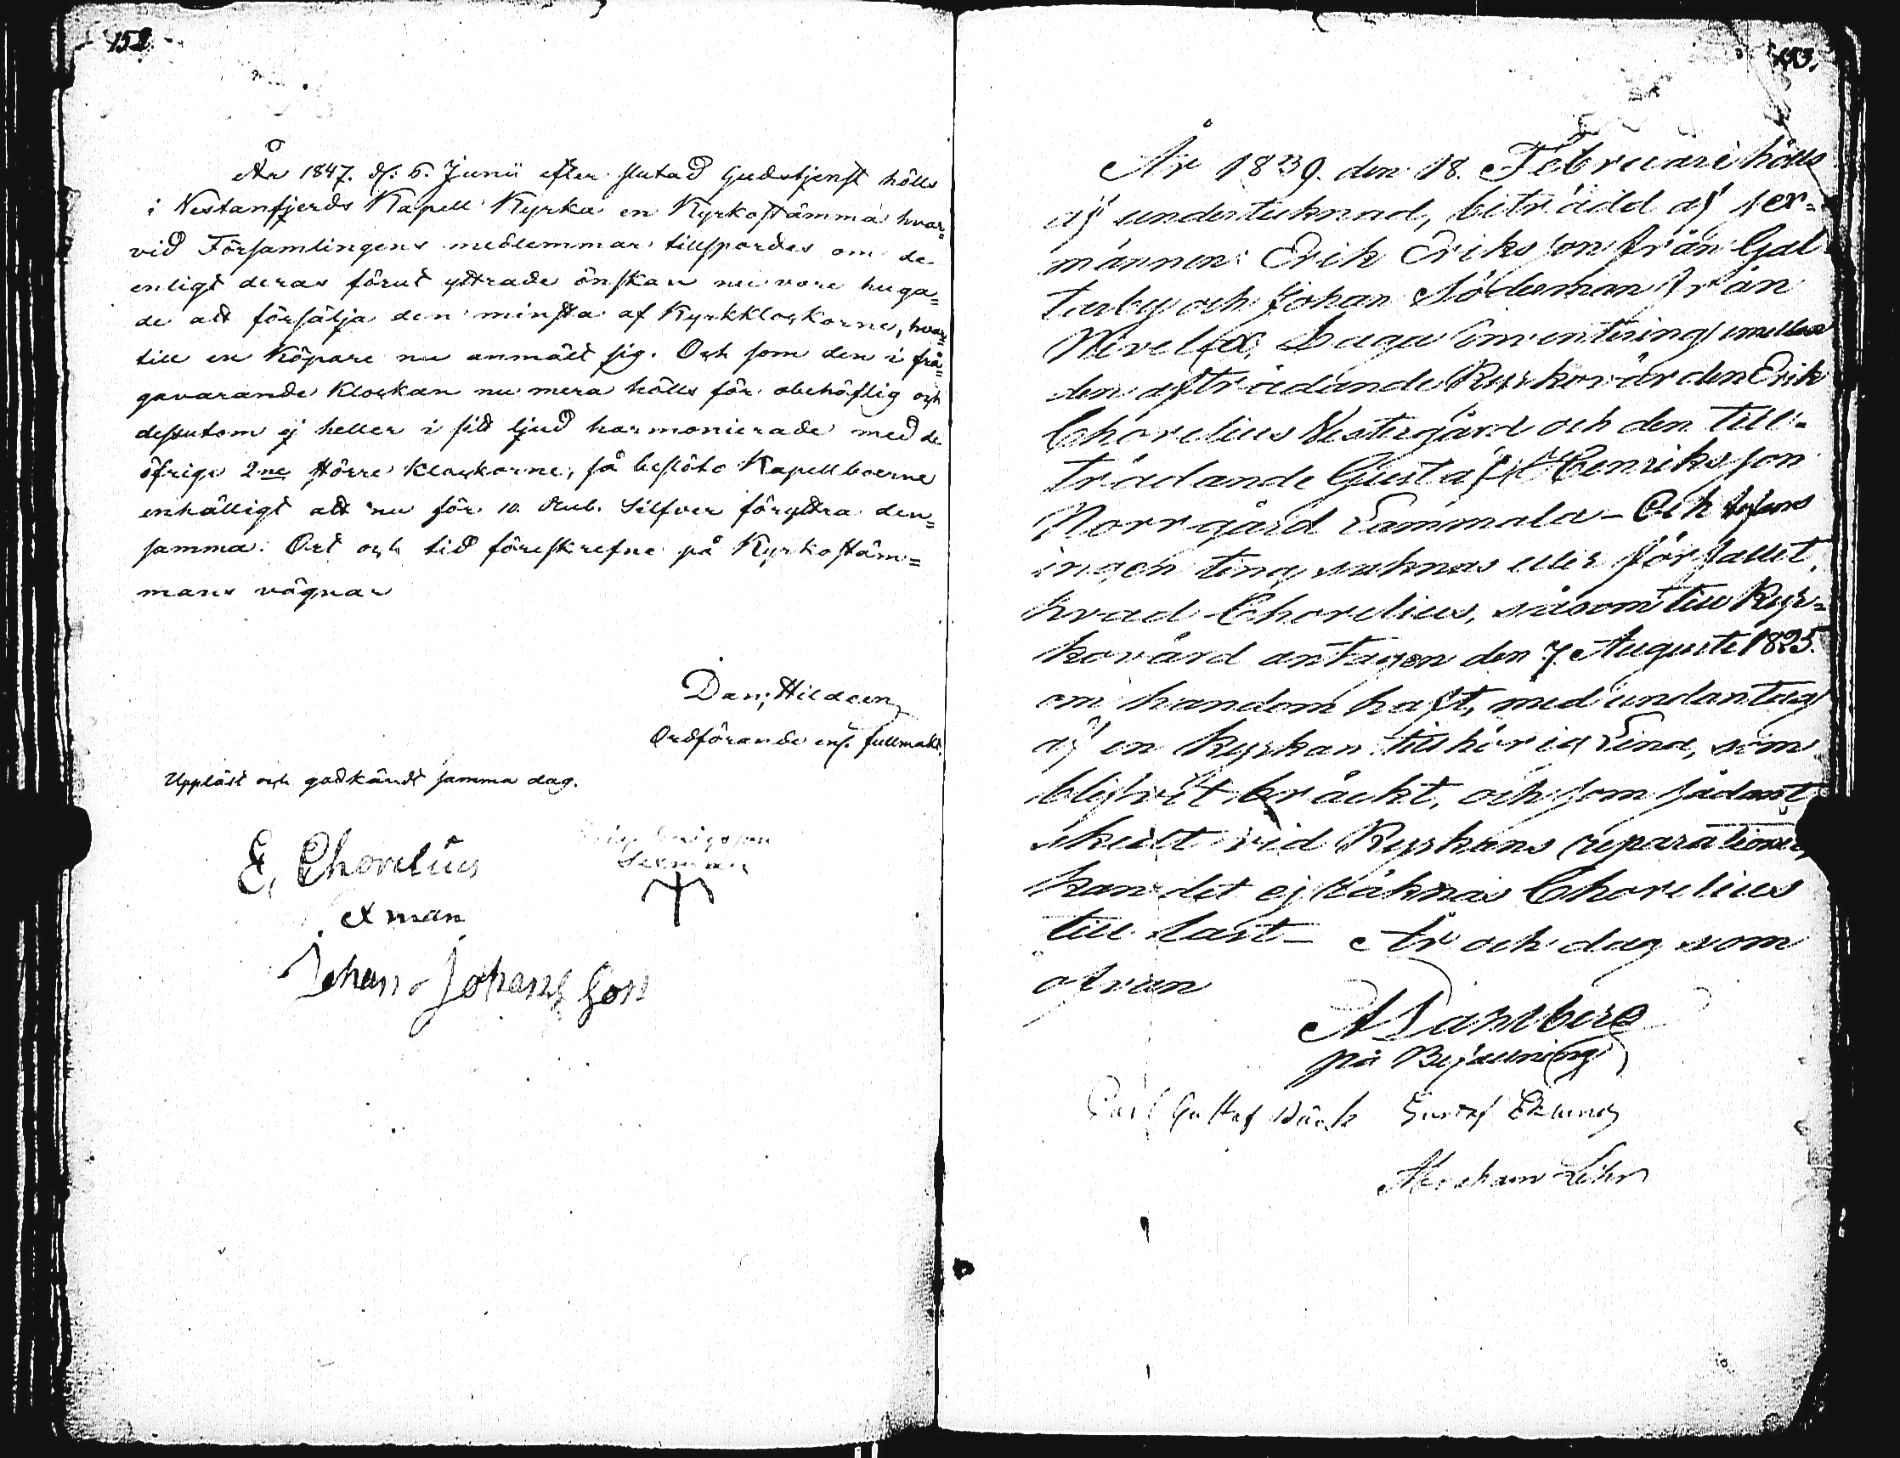 152.
År 1847. d: 6. Junii efter slutad Gudstjenst hölls
i Vestanfjerds Kapell Kyrka en Kyrkostämma hvar=
vid Församlingens medlemmar tillspordes om de
enligt deras förut yttrade önskan nu vore huga=
de att försälja den minsta af Kyrkklockorne, hvar=
till en Köpare nu anmält sig. Och som den i frå=
gavarande Klockan nu mera hölls för obehöflig och
dessutom ej heller i sitt ljud harmonierade med de
öfrige 2ne större klockorne, så beslöto Kapellboerne
enhälligt att nu för 10. Rub. Silfver föryttra den=
samma. Ort och tid föreskrefne på Kyrkostäm=
mans vägnar
Dan: Hildeen
Ordförande enl. fullmakt.
Uppläst och godkändt samma dag.
E, Chorelius
Erig Erigsson
Sexman
exman
Johan Johansson
153.
År 1839. den 18. Februari hölls
af undertecknad, biträdd af sex=
männen: Erik Eriksson från Gal
tarby och Johan Söderman från
Nivelax, Laga Inventering emellan
den afträdande Kyrkovärden Erik
Chorelius Westergård och den till=
trädande Gustaf Henriksson
Norrgård Lammala – Och befans
ingen ting saknas eller förfallet,
hvad Chorelius, såsom till Kyr=
kovärd antagen den 7. Augusti 1825.
om handom haft, med undantag
af en kyrkan tillhörig Lina, som
blifvit bråckt, och som sådant
skedt vid Kyrkans reparationer,
kan det ej räknas Chorelius
till last – År och dag som
ofvan
A Dahlberg
på Befallning
Carl Gustaf Bäck Gustaf Eklund
Abraham Lihr